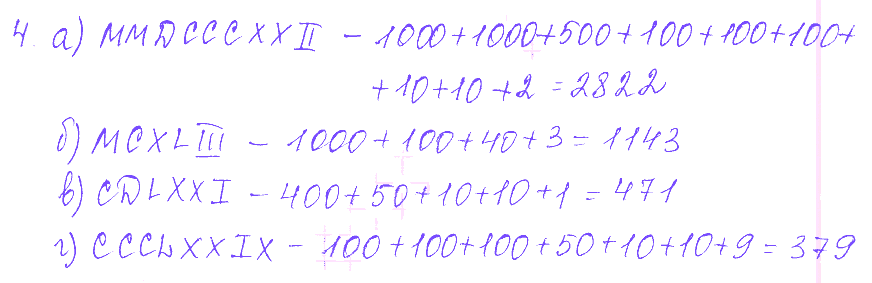 4. а) MMDCCCXXII – 1000+1000+500+100+100+100+
+10+10+2 = 2822
б) MCXLIII – 1000+100+40+3 = 1143
в) CDLXXI – 400+50+10+10+1 = 471
г) CCCLXXIX – 100+100+100+50+10+10+9 = 379